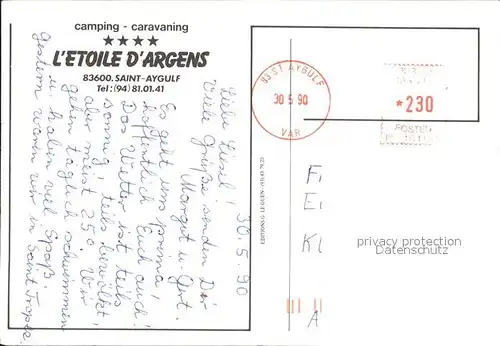 camping - caravaning
★★★★
L'ETOILE D'ARGENS
83600. SAINT-AYGULF
Tel: (94) 81.01.41
30.5.90
Liebe Liesel!
Viele Grüße senden Dir
Margut u. Gert.
Es geht uns prima,
hoffentlich Euch auch!
Das Wetter ist teils
sonnig, teils bewölkt,
aber meist 25°. Wir
gehen täglich schwimmen
u. haben viel Spaß.
Gestern waren wir in Saint Tropez.
EDITIONS G. LE GUEN
83 ST AYGULF
30 5 90
VAR
*230
POSTES
F
E
K
A
privacy protection
Datenschutz